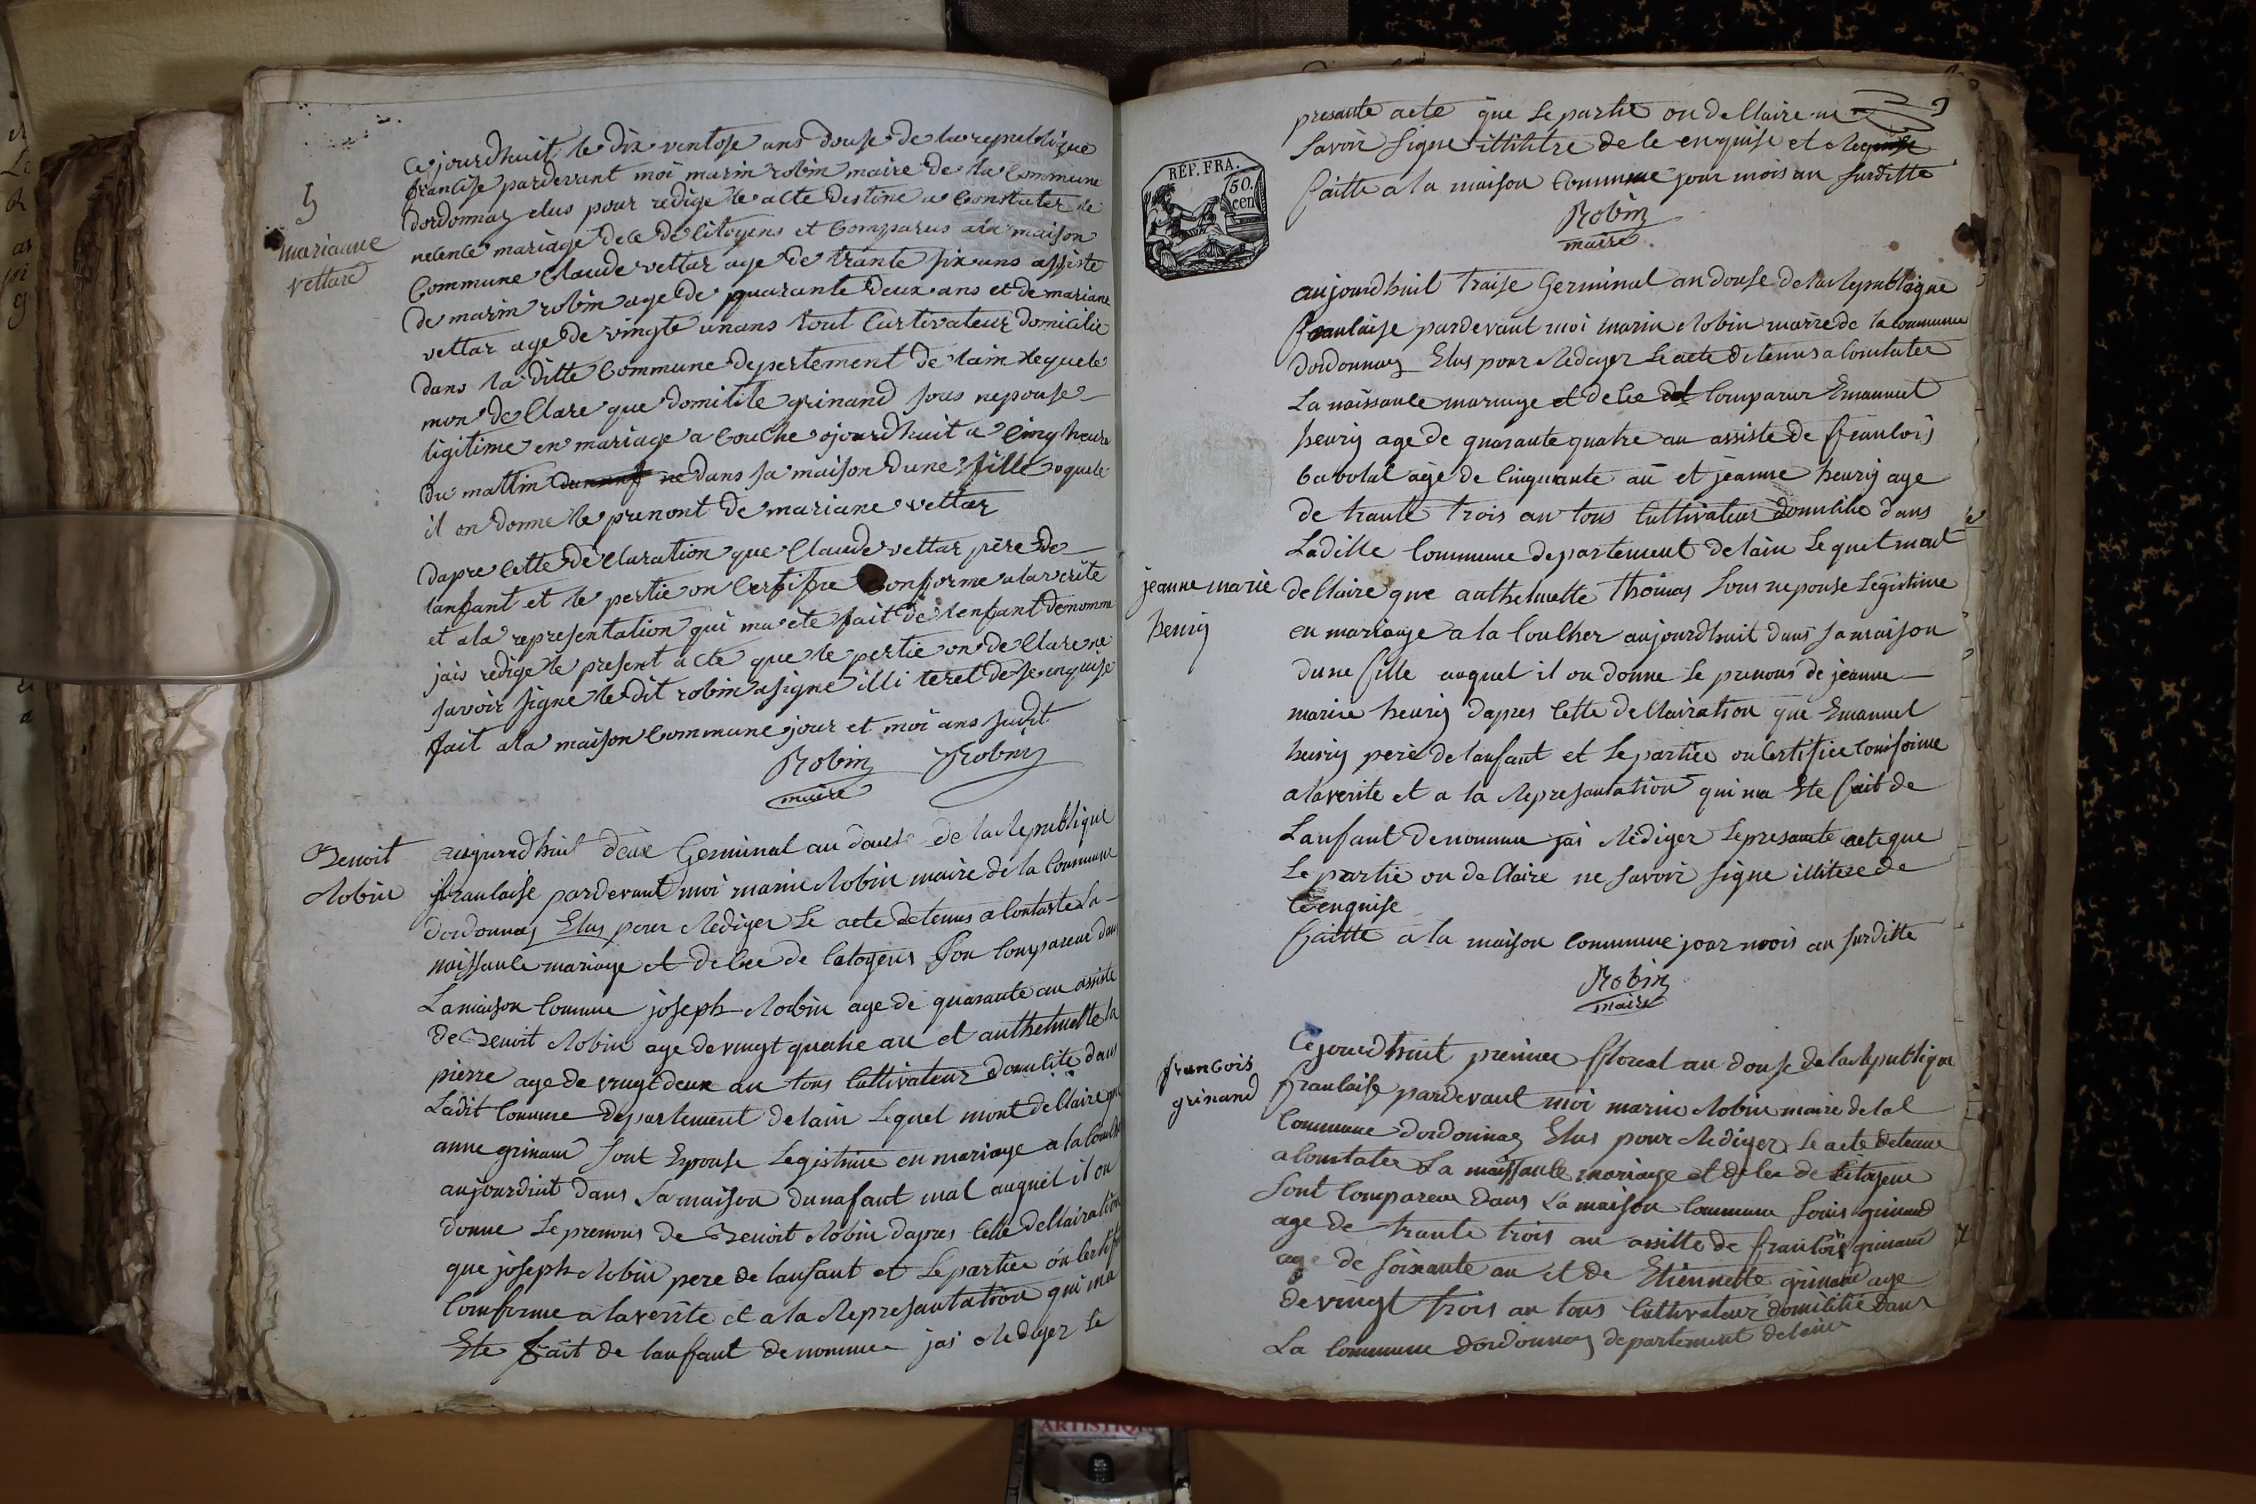 5
marianne
vettard
Ce jourdhuit le dix ventose ans douse de la republique
francise pardevant moi marin robin maire de la Commune
dordonnaz elus pour redige le acte destine a Constater le
nesence mariage dece de Citoyens et Comparus a la maison
Commune Claude vettar age de trante six ans assiste
de marin robin age de quarante deux ans et de mariane
vettar age de vingte un ans tout Curtivateur domicilie
dans la ditte Commune depertement de lain lequele
mon de Clare que domitile grinand sous nepouse
ligitime en mariage a Couche ojourdhuit a Cinq heure
du mattin dans sa maison dune fille oquele
il on donne le prenont de mariane vettar
dapre Cette de Claration que Claude vettar père de
lanfant et le pertie on Certifie Conforme a la verite
et a la representation qui ma ete fait de lenfant denomme
jais redige le present acte que le pertie on de Clare ne
savoir signe le dit robin a signe illi teret de se enquise
fait a la maison Commune jour et moi ans sudit
Robin Robin
maire
Benoit
Robin
aujourdhuit deux Germinal an douse de la Republique
franlaise pardevant moi marin Robin maire de la Commune
dordonnaz Elus pour Rediger Le acte detenus a Contaste La
naissance mariage et de Cee de Catoyens son Compareue dans
La maison Commune joseph Robin age de quarante an assiste
de Benoit Robin age de vingt quatre an et anthelmette la
pierre age de vingt deux an tous Cultivateur domilité dans
Ladit Commune departement de lain Lequel mont de Claire que
anne grinand sont Epouse Legistime en mariage a la Coucher
aujourdint dans sa maison dunafant mal auquel il on
donne Le prenons de Benoit Robin dapres Cette de Clairation
que joseph Robin pere de lanfant et Le partiee on Certifie
Comforme a la verite et a la Represantation qui ma
Ete fait de lanfant denomme jai Rediger Le
presante acte que Le partie on de Claire ne
savoir signe illitetre de le enquise et Requise
faitte a la maison Commune jour mois an surditte
Robin
maire
REP. FRA.
50.
cen
aujourdhuit traise Germinal an douse de la Republique
franlaise pardevant moi marin Robin maire de la Commune
dordonnaz Elus pour Rediger Le acte detenus a Constater
La naissance mariage et de Cee Comparur Emanuel
henry age de quarante quatre an assiste de francois
Cavolat age de Cinquante an et jeanne henry age
de trante trois an tous Cultivateur domilitie dans
Ladille Commune departement de lain Le quel mont
jeanne marie
henry
de Claire que anthelmette Thomas Sous nepouse Legistime
en mariage a la Coucher aujourdhuit dans sa maison
dune fille auquel il on donne Le prenons de jeanne
marie henry dapres Cette de Clairation que Emanuel
henry pere de lanfant et Le partiee on Certifiee Comforme
a la verite et a la Represantation qui ma Ete fait de
Lanfant denomme jai Rediger Le presante acte que
Le partie on de Claire ne savoir signe illitere de
Ce enquise
faitte a la maison Commune jour mois an surditte
Robin
maire
francois
grinand
Ce jourdhuit premier floreal an douse de la Republique
franlaise pardevant moi marin Robin maire de la
Commune dordonnaz Elus pour Rediger Le acte detenue
a Constater La naissance mariage et de Cee de Citoyene
sont Compareue dans La maison Commune Louis grinand
age de trante trois an assitte de francois grinand
age de soixante an et de Etiennette grinand age
de vingt trois an tous Cultivateur domilitié dans
La Commune dordonnaz departement de lain